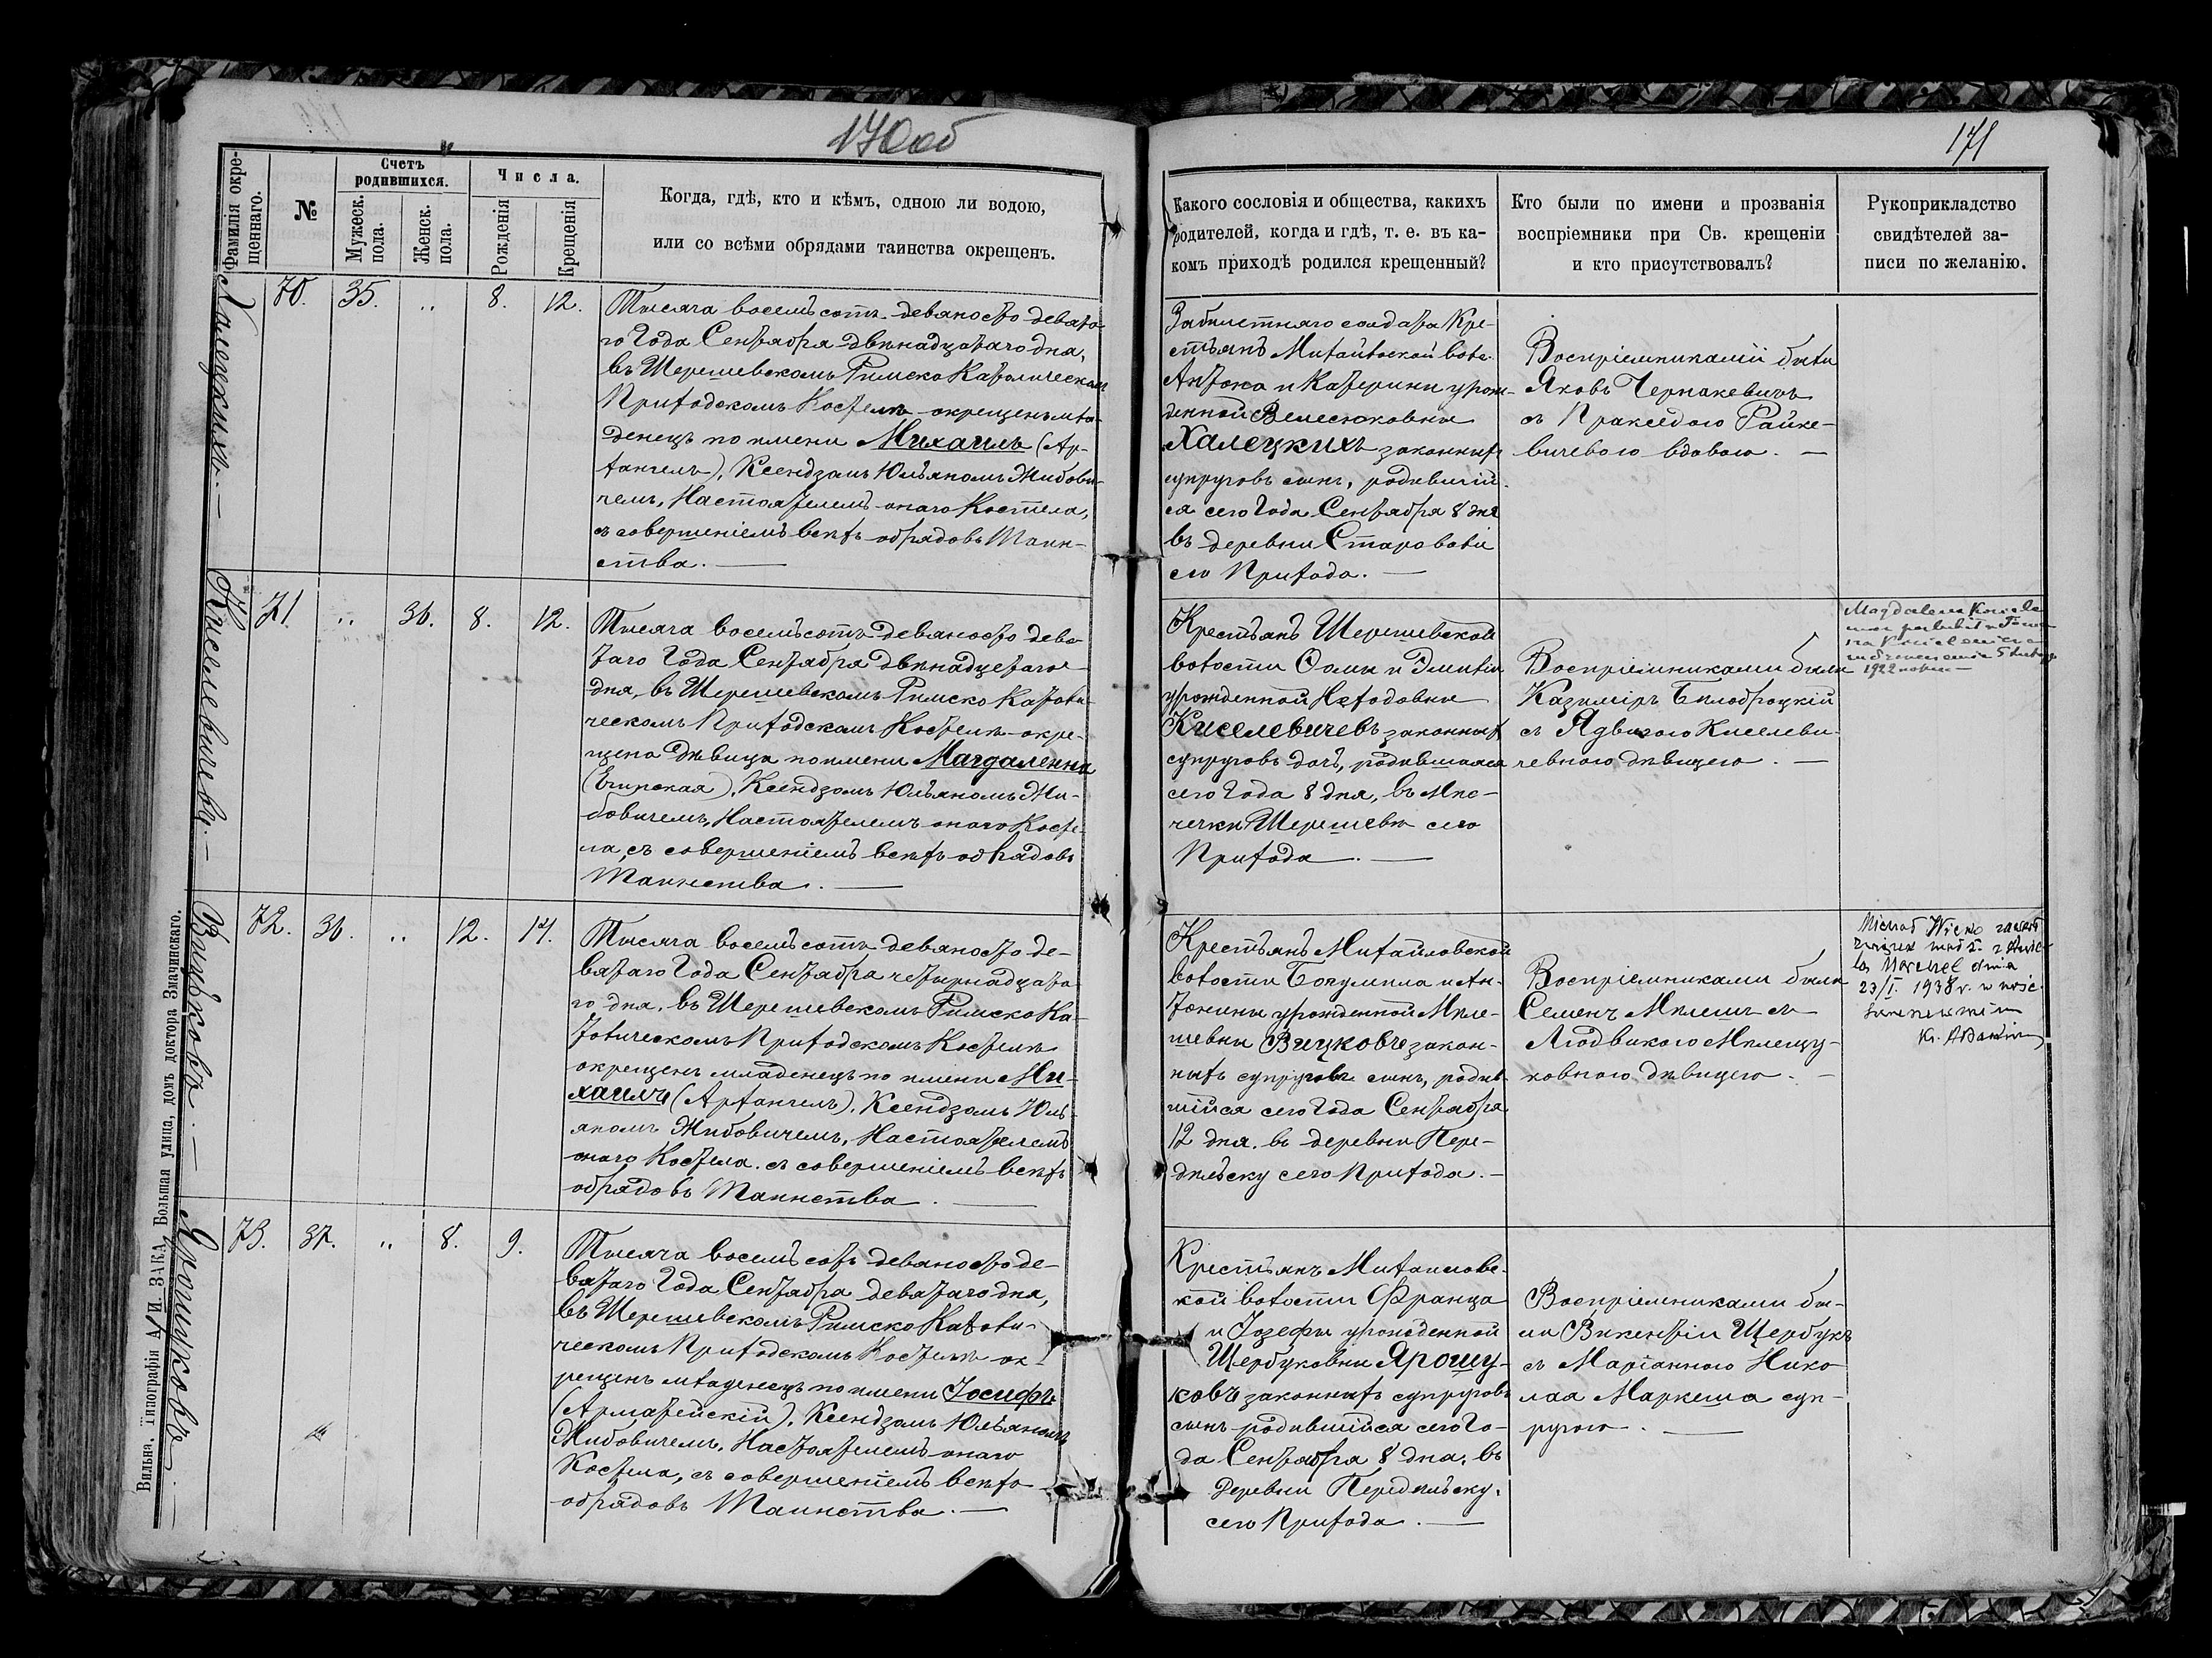 170об
171
Фамилія окре-
щеннаго.
№
Счетъ
родившихся.
Мужеск.
пола.
Женск.
пола.
Числа.
Рожденія
Крещенія
Когда, гдѣ, кто и кѣмъ, одною ли водою,
или со всѣми обрядами таинства окрещенъ.
Какого сословія и общества, какихъ
родителей, когда и гдѣ, т. е. въ ка-
комъ приходѣ родился крещенный?
Кто были по имени и прозванія
воспріемники при Св. крещеніи
и кто присутствовалъ?
Рукоприкладство
свидѣтелей за-
писи по желанію.
Халецкихъ. —
70.
35.
„
8.
12.
Тысяча восемьсотъ девяносто девято-
го Года Сентября двѣнадцатаго дня,
въ Шерешевскомъ Римско Католическомъ
Приходскомъ Костелѣ окрещенъ мла-
денецъ по имени Михаилъ (Ар-
хангелъ), Ксендзомъ Юльяномъ Жибови-
чемъ, Настоятелемъ онаго Костела,
съ совершеніемъ всѣхъ обрядовъ Таин-
ства. —
солдата Кре-
стьянъ воло.
Антона и Катерины урож-
денной
Халецкихъ законныхъ
супруговъ сынъ, родившій-
ся сего Года Сентября 8 дня
въ деревни Староволи
сего Прихода. —
Воспріемниками были
Яковъ Чернакевичъ
съ Пракседою Райке-
вичевою вдовою. —
Киселевичевъ. —
71.
„
36.
8.
12.
Тысяча восемьсотъ девяносто девя-
таго Года Сентября двѣнадцатаго
дня, въ Шерешевскомъ Римско Католи-
ческомъ Приходскомъ Костелѣ окре-
щена дѣвица по имени Магдаленна
(Египская), Ксендзомъ Юльяномъ Жи-
бовичемъ, Настоятелемъ онаго Косте-
ла, съ совершеніемъ всѣхъ обрядовъ
Таинства. —
Крестьянъ Шерешевской
волости Фомы и Эмиліи
урожденной
Киселевичевъ законныхъ
супруговъ дочь, родившаяся
сего Года 8 дня, въ Мѣс-
течкѣ Шерешевѣ сего
Прихода. —
Воспріемниками были
Казиміръ Бѣлоброцкій
съ Ядвигою Киселеви-
чевною дѣвицею. —
Magdalena
1922
Вицковъ. —
72.
36.
„
12.
14.
Тысяча восемьсотъ девяносто де-
вятаго Года Сентября четырнадцата-
го дня, въ Шерешевскомъ Римско Ка-
толическомъ Приходскомъ Костелѣ
окрещенъ младенецъ по имени Ми-
хаилъ (Архангелъ), Ксендзомъ Юль-
яномъ Жибовичемъ, Настоятелемъ
онаго Костела, съ совершеніемъ всѣхъ
обрядовъ Таинства. —
Крестьянъ Михайловской
волости Богумила и Ан-
тонины урожденной Миле-
шевны Вицковъ закон-
ныхъ супруговъ сынъ, родив-
шійся сего Года Сентября
12 дня, въ деревни Пере-
дѣльску сего Прихода. —
Воспріемниками были
Семенъ Милешъ съ
Людвикою Милещу-
ковною дѣвицею. —
Michał Wicko zawarł
związek małż. z
Marchel dnia
23/I. 1938 r. w
Ярошуковъ. —
73.
37.
„
8.
9.
Тысяча восемьсотъ девяносто де-
вятаго Года Сентября девятаго дня,
въ Шерешевскомъ Римско Католи-
ческомъ Приходскомъ Костелѣ ок-
рещенъ младенецъ по имени Іосифъ
(Армаѳейскій), Ксендзомъ Юльяномъ
Жибовичемъ, Настоятелемъ онаго
Костела, съ совершеніемъ всѣхъ
обрядовъ Таинства. —
Крестьянъ Михайловс-
кой волости Франца
и Іозефы урожденной
Щербуковны Ярошу-
ковъ законныхъ супруговъ
сынъ родившійся сего Го-
да Сентября 8 дня, въ
Деревни Передѣльску,
сего Прихода. —
Воспріемниками бы-
ли Викентій Щербукъ
съ Маріанною Нико-
лая Маркеша суп-
ругою. —
Вильна. Типографія А. И. ЗАКА Большая улица, домъ доктора Змачинскаго.